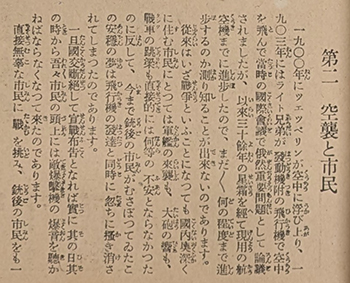 第二 空襲と市民
一九〇〇年にツェッペリンが空中に浮び上り、一
九〇三年にはライト兄弟が發動機附の飛行機で空中
を飛んで當時の國際會議で俄然重要問題として論議
されましたが、以來三十餘年の星霜を經て現用の航
空機までに進歩したので、まだ〳〵何の程度まで進
歩するのか測り知ることが出來ないのであります。
從來はいざ戰爭といふことになつても國內奧深く
に住む市民にとつては軍艦の來襲も、大砲の響も、
戰車の蹂躪も直接的には何等の不安とならなかつた
のに反して、今まで銃後の市民がむさぼつてゐたこ
の安穩の夢は飛行機の發達と同時に忽ちに搔き消さ
れてしまつたのであります。
一旦國交斷絕して宣戰布吿となれば實に其の日其
の時から吾々市民の頭上には敵爆擊機の爆音を聽か
ねばならなくなつて來たのであります。
直接無辜な市民に戰を挑み、銃後の市民をも一